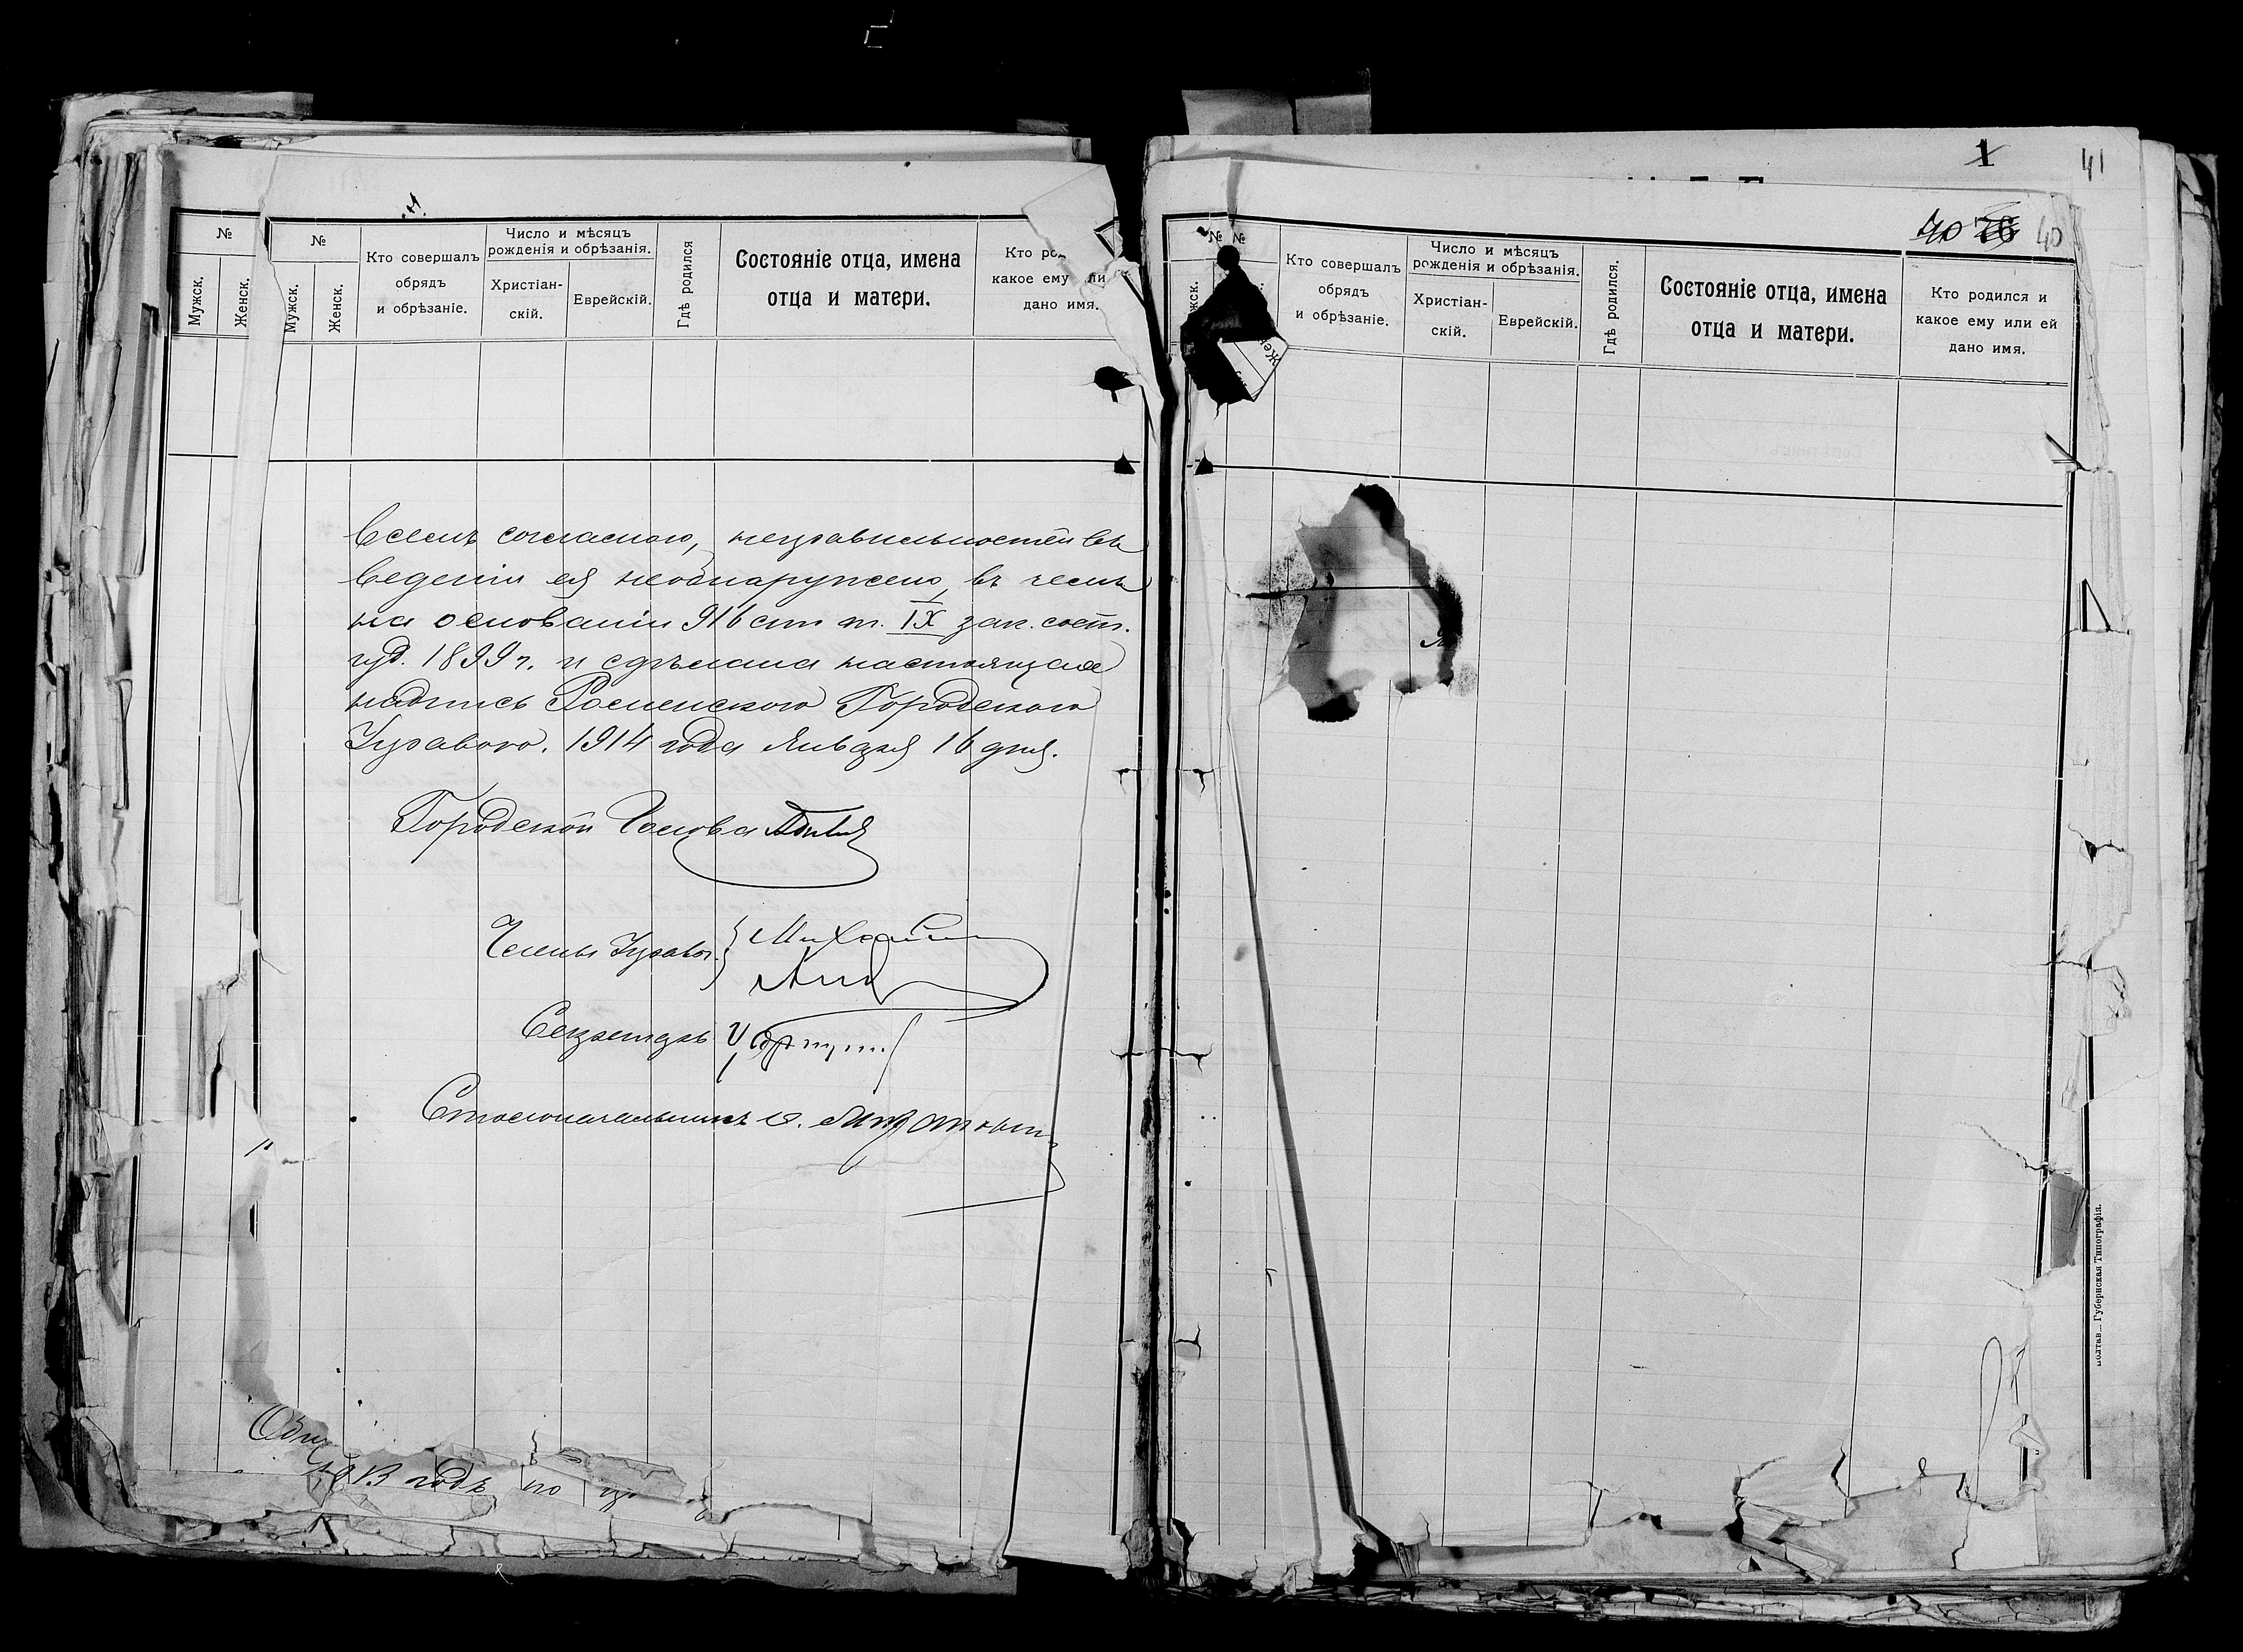 №
Мужск.
Женск.
№
Мужск.
Женск.
Кто совершалъ
обрядъ
и обрѣзаніе.
Число и мѣсяцъ
рожденія и обрѣзанія.
Христіан-
скій.
Еврейскій.
Гдѣ родился
Состояніе отца, имена
отца и матери.
Кто
какое ему
дано имя.
всемъ согласною, неправильностей въ
веденіи ея необнаружено, въ чемъ
на основаніи 916 ст т. IX зак. сост.
изд. 1899 г. и сдѣлана настоящая
надпись Роменскою Городскою
Управою. 1914 года Января 16 дня.
Городской Голова
Члены Управы
Секретарь
Столоначальникъ
1913 годъ по
1
41
40 76 40
№ №
Кто совершалъ
обрядъ
и обрѣзаніе.
Число и мѣсяцъ
рожденія и обрѣзанія.
Христіан-
скій.
Еврейскій.
Гдѣ родился.
Состояніе отца, имена
отца и матери.
Кто родился и
какое ему или ей
дано имя.
Губернская Типографія.